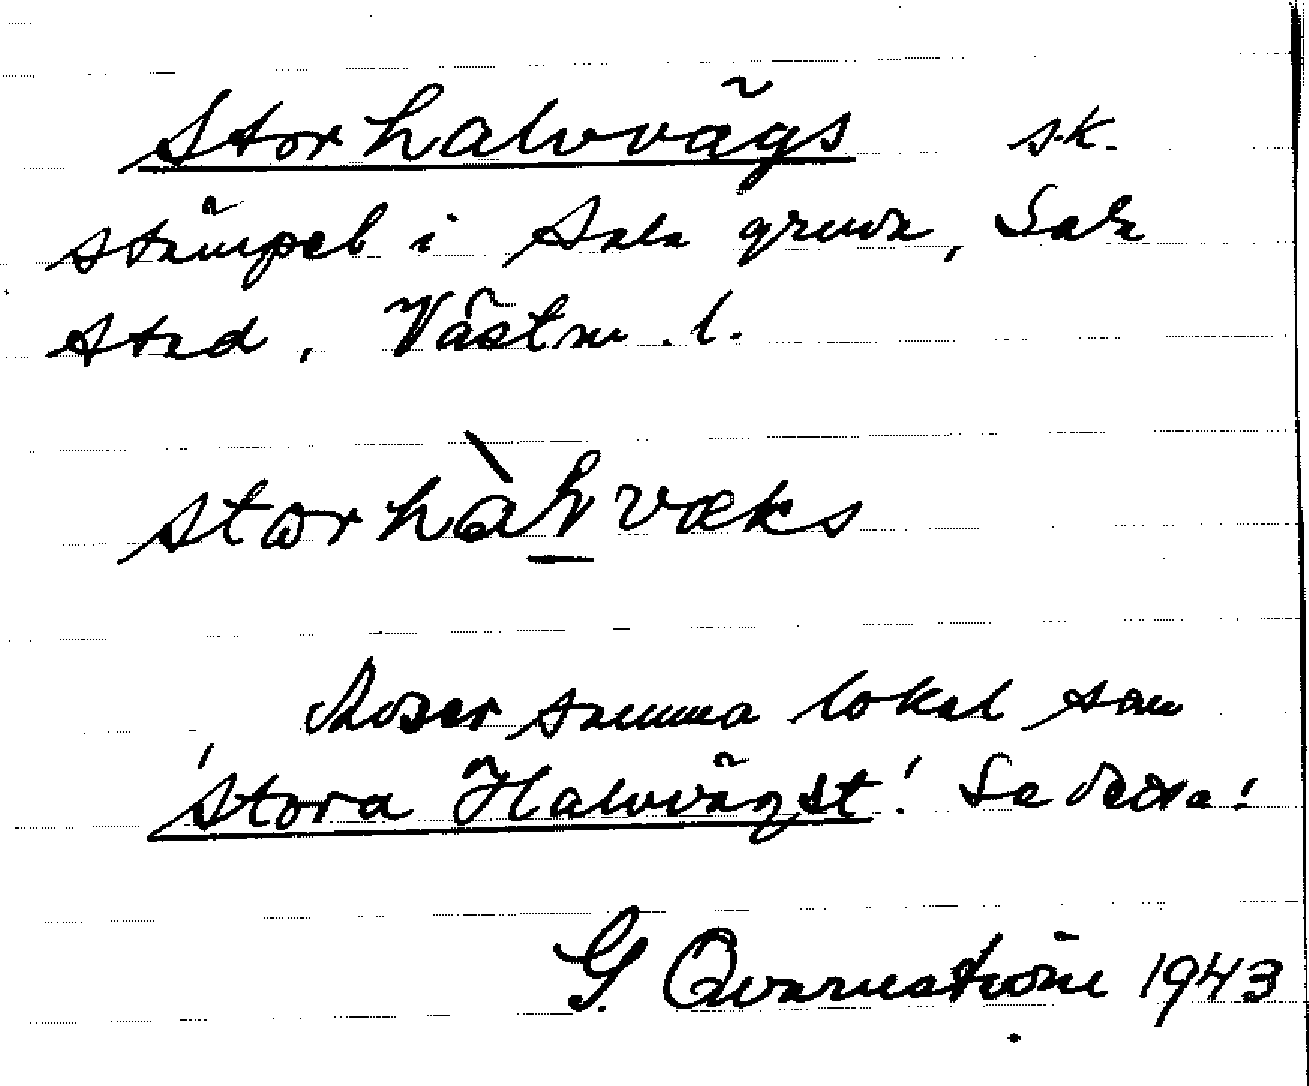 Storhalvvägs sk.
stämpel i Sala gruva, Sala
stad, Västm. l.
storhàlvvæks
Avser samma lokal som
'Stora Halvvägst'! Se detta!
G. Qvarnström 1943